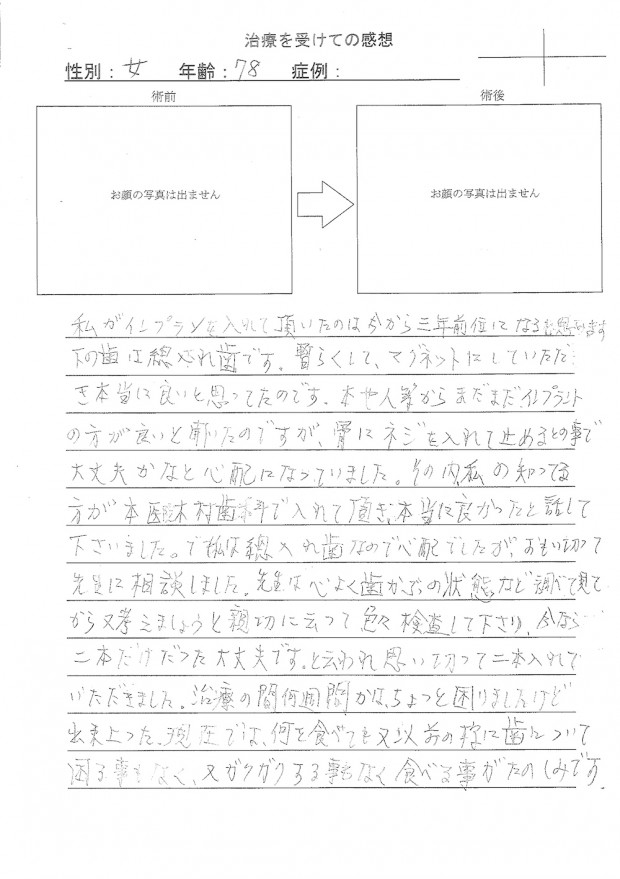 治療を受けての感想
性別：女 年齢：78 症例：
術前
術後
お顔の写真は出ません
お顔の写真は出ません
私がインプランを入れて頂いたのは今から三年前位になると思います
下の歯は總入れ歯です。暫らくして、マグネットにしていただ
き本当に良いと思ってたのです。本や人等からまだまだインプラント
の方が良いと聞いたのですが、骨にネジを入れて止めるとの事で
大丈夫かなと心配になっていました。その内、私の知ってる
方が本医院木村歯科で入れて頂き、本当に良かったと話して
下さいました。で私は總入れ歯なので心配でしたが、おもい切って
先生に相談しました。先生は心よく歯かぶの状態など調べて見て
から又考えましょうと親切に云って色々検査して下さり、今なら
二本だけだった大丈夫です。と云われ思い切って二本入れて
いただきました。治療の間何週間かは、ちょっと困りましたけど
出来上った。現在では、何を食べても又以前の様に歯について
困る事もなく、又ガクガクする事もなく食べる事がたのしみです。